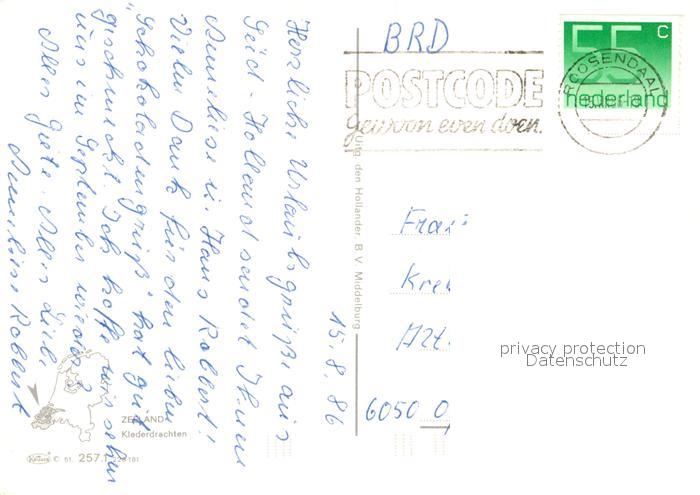 15.8.86
Herzliche Urlaubsgrüße aus
Süd-Holland sendet Ihnen
Anneliese u. Hans Robbert!
Vielen Dank für den lieben
"Schokoladengruß" hat gut
geschmeckt. Ich hoffe wir sehen
uns im September wieder?
Alles Gute. Alles Liebe
Anneliese Robbert
BRD
POSTCODE
gewoon even doen.
ROOSENDAAL
55 c
nederland
Uitg. den Hollander B.V. Middelburg
Frau
Kre
Alt.
6050 O
privacy protection
Datenschutz
ZEELAND
Klederdrachten
© 51. 257.1